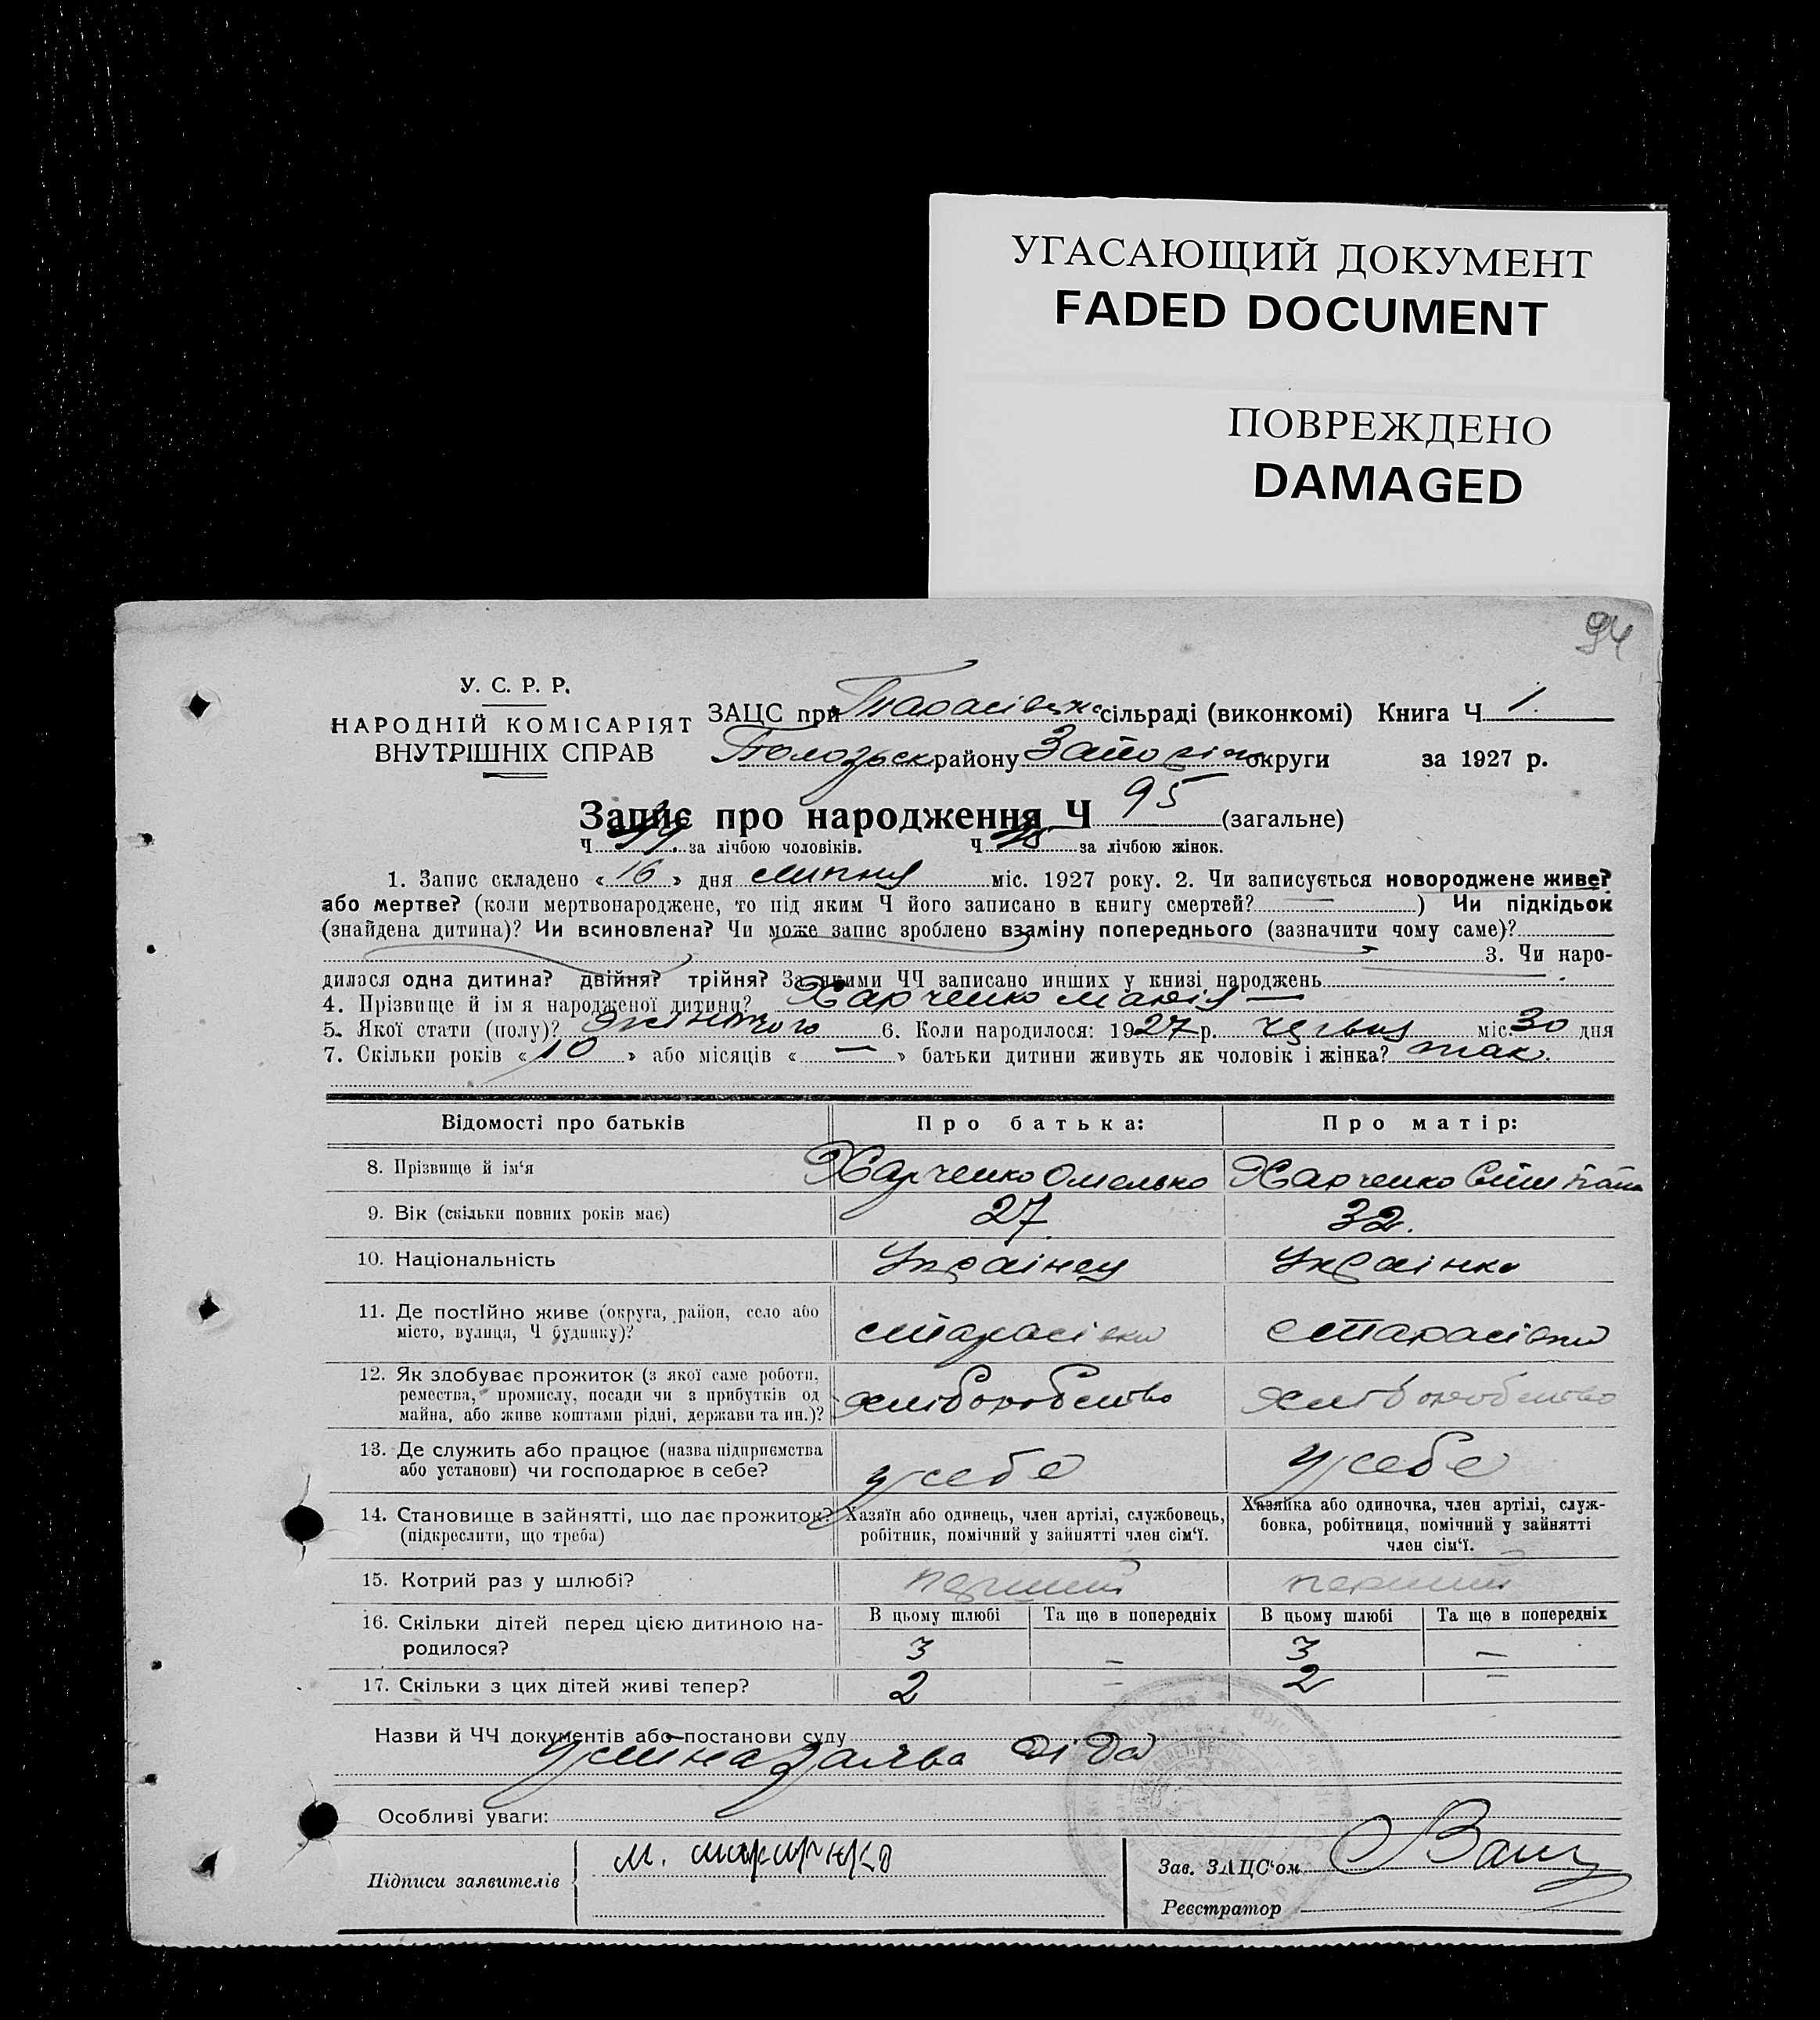 УГАСАЮЩИЙ ДОКУМЕНТ
FADED DOCUMENT
ПОВРЕЖДЕНО
DAMAGED
94
У. С. Р. Р.
НАРОДНІЙ КОМІСАРІЯТ
ВНУТРІШНІХ СПРАВ
ЗАЦС при Тарасівське сільраді (виконкомі) Книга Ч 1.
району округи за 1927 р.
Запис про народження Ч 95 (загальне)
Ч за лічбою чоловіків. Ч за лічбою жінок.
1. Запис складено « 16 » дня липня міс. 1927 року. 2. Чи записується новороджене живе?
або мертве? (коли мертвонароджене, то під яким Ч його записано в книгу смертей? — ) Чи підкідьок
(знайдена дитина)? Чи всиновлена? Чи може запис зроблено взаміну попереднього (зазначити чому саме)?
3. Чи наро-
дилася одна дитина? двійня? трійня? За якими ЧЧ записано инших у книзі народжень
4. Прізвище й ім я народженої дитини? Харченко Марія —
5. Якої стати (полу)? жіночого 6. Коли народилося: 1927 р. червня міс. 30 дня
7. Скільки років « 10 » або місяців « — » батьки дитини живуть як чоловік і жінка? так.
Відомості про батьків Про батька: Про матір:
8. Прізвище й ім'я Харченко Омелько Харченко
9. Вік (скільки повних років має) 27 32.
10. Національність Українец Українка
11. Де постійно живе (округа, район, село або
місто, вулиця, Ч будинку)? с Тарасівка с Тарасівка
12. Як здобуває прожиток (з якої саме роботи,
ремества, промислу, посади чи з прибутків од
майна, або живе коштами рідні, держави та ин.)? хліборобство хліборобство
13. Де служить або працює (назва підприємства
або установи) чи господарює в себе? у себе у себе
14. Становище в зайнятті, що дає прожиток?
(підкреслити, що треба)
Хазяїн або одинець, член артілі, службовець,
робітник, помічний у зайнятті член сім'ї.
Хазяйка або одиночка, член артілі, служ-
бовка, робітниця, помічний у зайнятті
член сім'ї.
15. Котрий раз у шлюбі? перший перший
16. Скільки дітей перед цією дитиною на-
родилося?
В цьому шлюбі Та ще в попередніх В цьому шлюбі Та ще в попередніх
3 — 3 —
17. Скільки з цих дітей живі тепер? 2 — 2 —
Назви й ЧЧ документів або постанови суду
діда
Особливі уваги:
Підписи заявителів М.
Зав. ЗАЦС'ом
Реєстратор